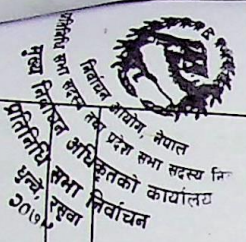 निर्वाचन आयोग, नेपाल
प्रतिनिधि सभा सदस्य तथा प्रदेश सभा सदस्य नि
मुख्य निर्वाचन अधिकृतको कार्यालय
प्रतिनिधि सभा निर्वाचन
धुन्चे, रसुवा